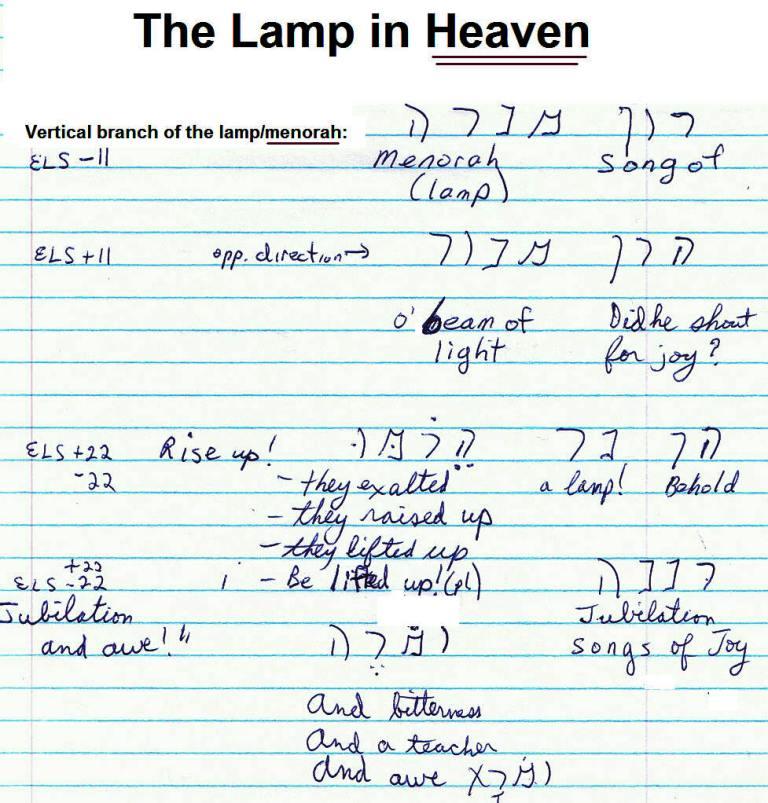 The Lamp in Heaven
Vertical branch of the lamp/menorah:
רון מנרה
ELS -11
Menorah
(lamp)
Song of
ELS +11
opp. direction→
הרן מנור
o' beam of
light
Did he shout
for joy?
ELS +22
-22
Rise up!
הן נר הרמו
- they exalted
a lamp!
Behold
- they raised up
- they lifted up
- Be lifted up! (pl)
+22
ELS -22
רננה
Jubilation
and awe!"
ומרה
Jubilation
Songs of Joy
And bitterness
And a teacher
And awe ומרא